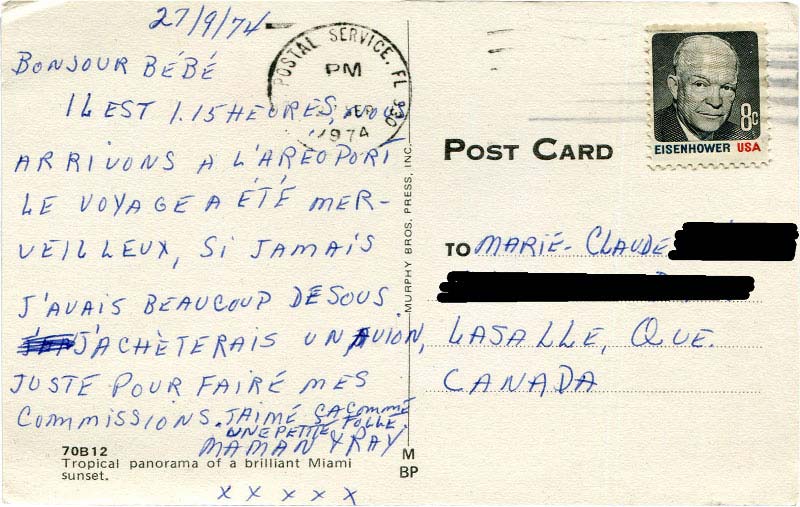 27/9/74
BONJOUR BÉBÉ
IL EST 1.15 HEURES, NOUS
ARRIVONS A L'AREOPORT
LE VOYAGE A ÉTÉ MER-
VEILLEUX, SI JAMAIS
J'AVAIS BEAUCOUP DE SOUS
J'ACHÈTERAIS UN AVION,
JUSTE POUR FAIRE MES
COMMISSIONS. J'AIME ÇA COMME
UNE PETITE FOLLE.
MAMAN & RAY
X X X X X
70B12
Tropical panorama of a brilliant Miami
sunset.
POSTAL SERVICE, FL
PM
1974
MURPHY BROS. PRESS, INC.
M
BP
POST CARD
8c
EISENHOWER USA
TO MARIE-CLAUDE
LASALLE, QUE.
CANADA